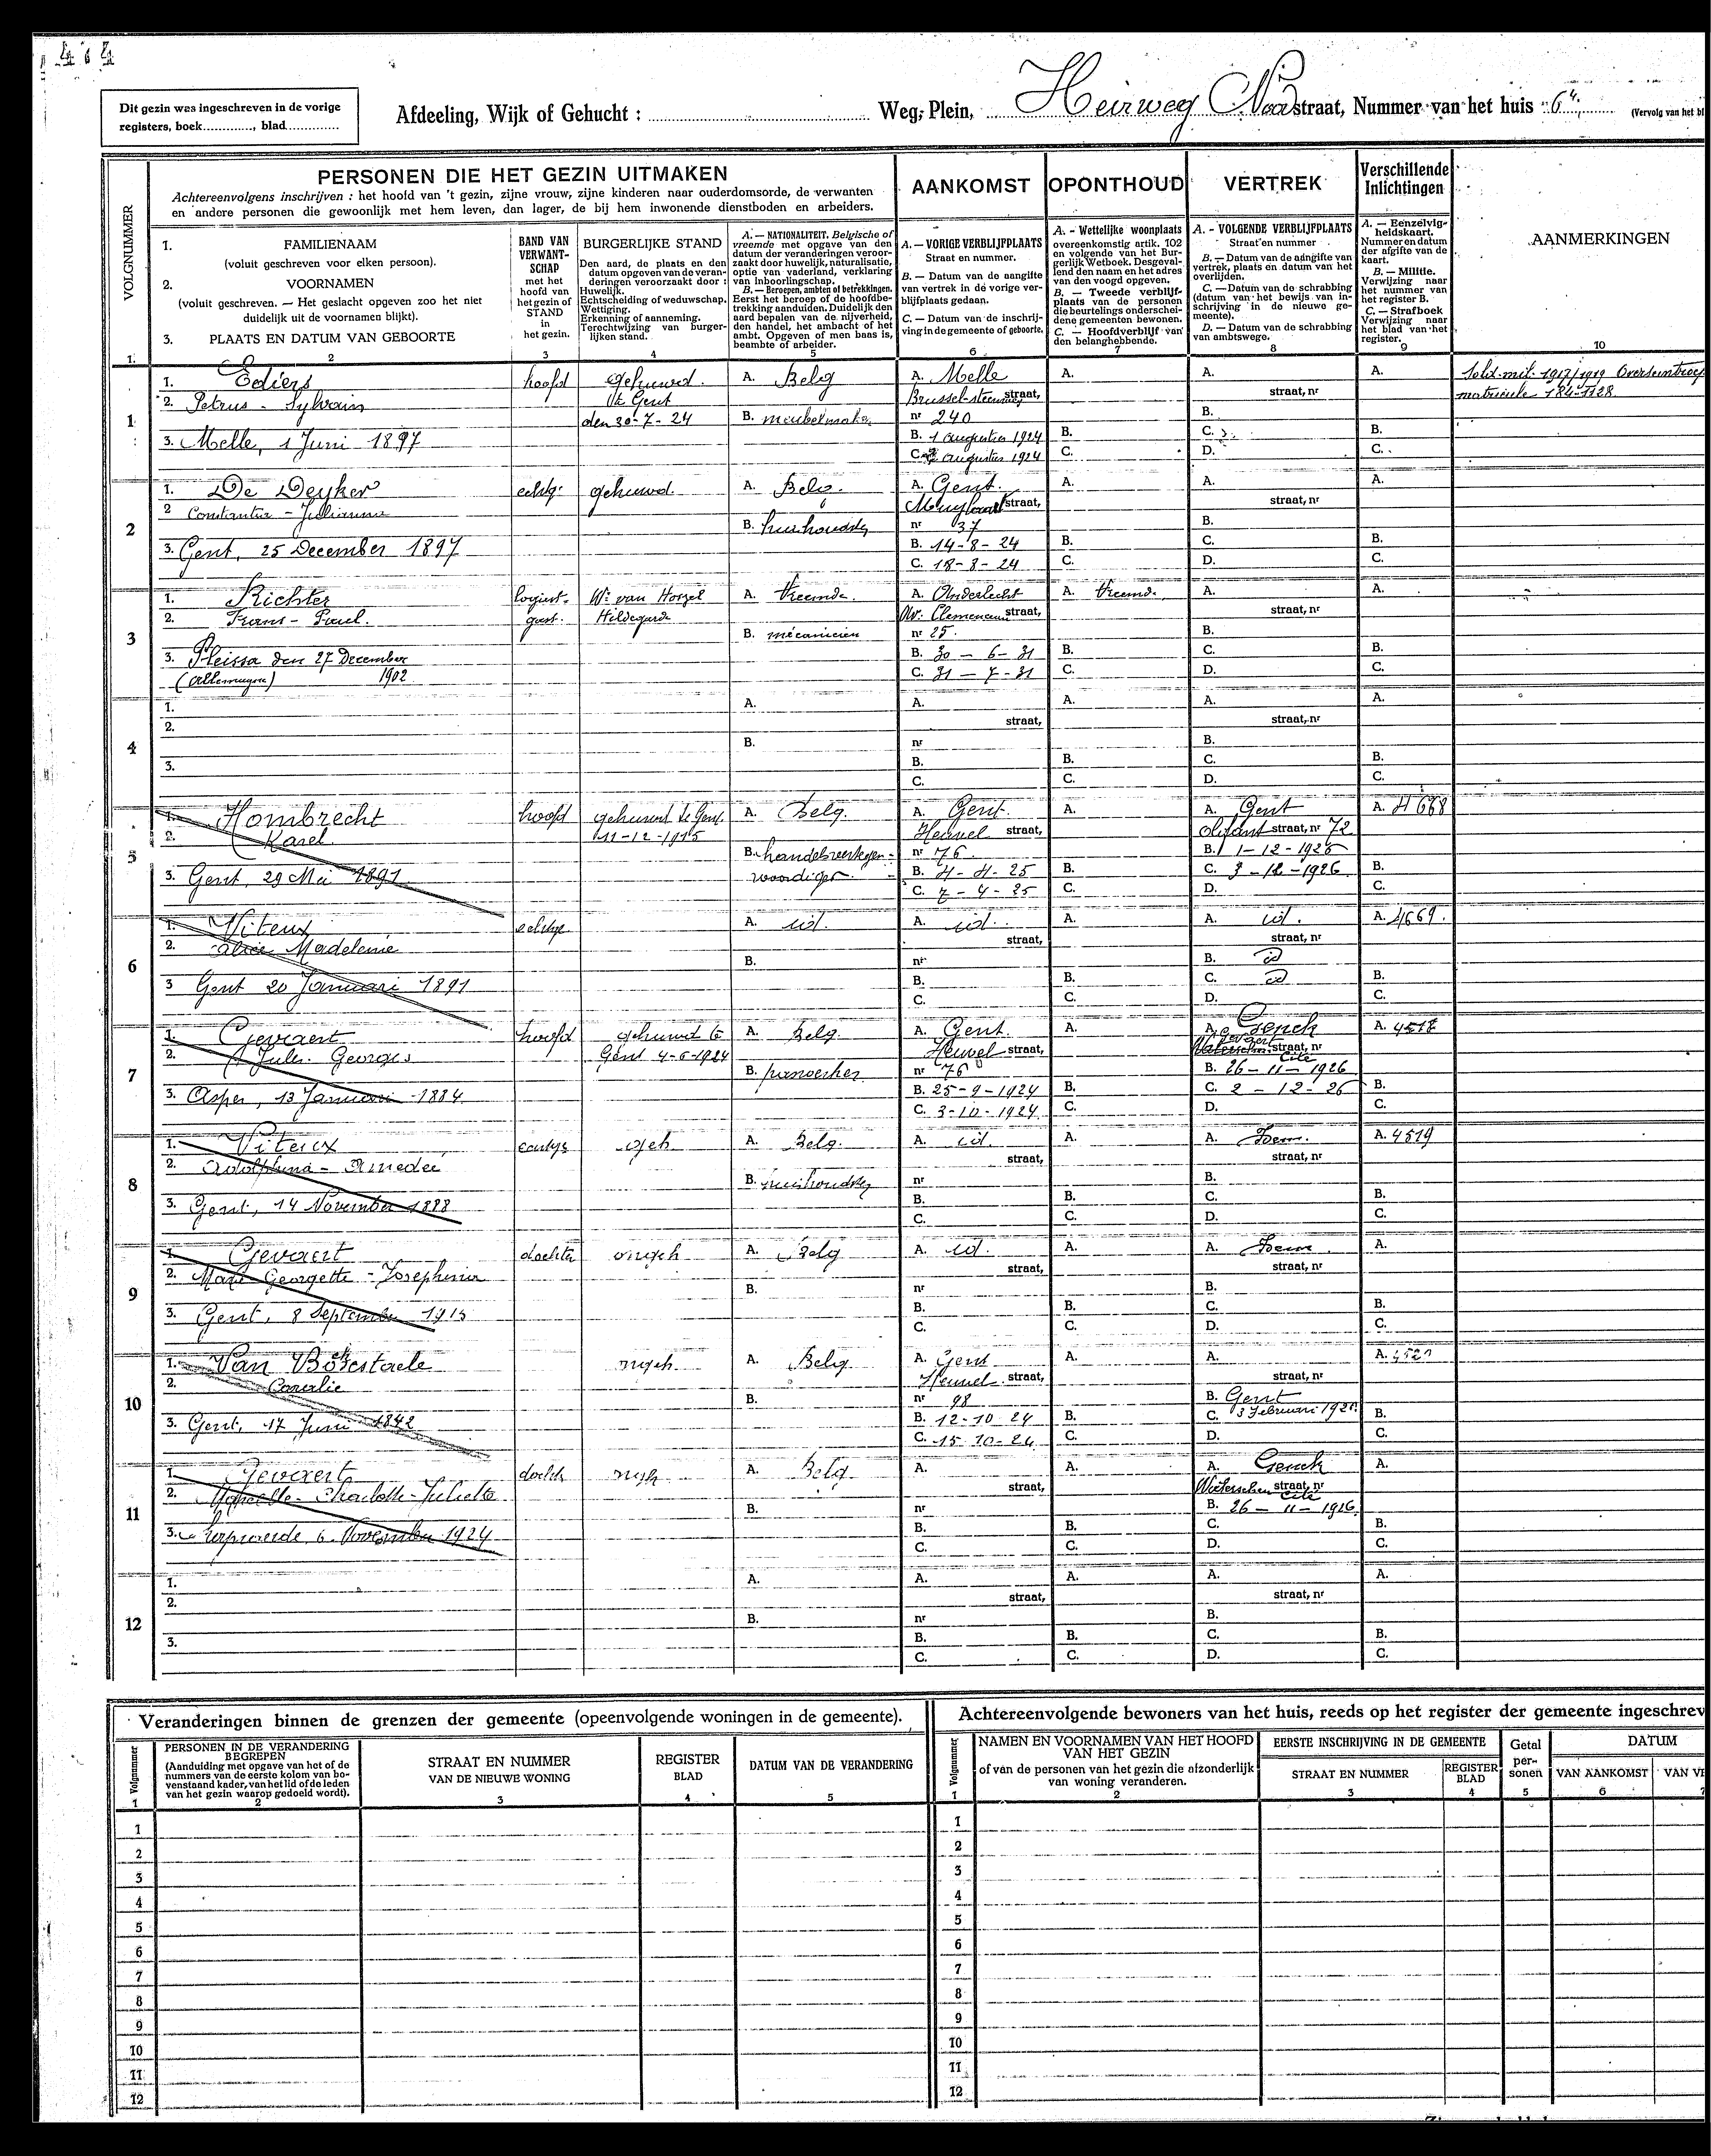 Dit gezin was ingeschreven in de vorige
registers, boek............., blad..............
Afdeeling, Wijk of Gehucht : Weg, Plein, Heirweg Noord straat, Nummer van het huis 64. (Vervolg van het bl
VOLGNUMMER
PERSONEN DIE HET GEZIN UITMAKEN
Achtereenvolgens inschrijven : het hoofd van 't gezin, zijne vrouw, zijne kinderen naar ouderdomsorde, de verwanten
en andere personen die gewoonlijk met hem leven, dan lager, de bij hem inwonende dienstboden en arbeiders.
AANKOMST
OPONTHOUD
VERTREK
Verschillende
Inlichtingen
1. FAMILIENAAM
(voluit geschreven voor elken persoon).
2. VOORNAMEN
(voluit geschreven. — Het geslacht opgeven zoo het niet
duidelijk uit de voornamen blijkt).
3. PLAATS EN DATUM VAN GEBOORTE
BAND VAN
VERWANT-
SCHAP
met het
hoofd van
het gezin of
STAND
in
het gezin.
BURGERLIJKE STAND
Den aard, de plaats en den
datum opgeven van de veran-
deringen veroorzaakt door :
Huwelijk.
Echtscheiding of weduwschap.
Wettiging.
Erkenning of aanneming.
Terechtwijzing van burger-
lijken stand.
A. — NATIONALITEIT. Belgische of
vreemde met opgave van den
datum der veranderingen veroor-
zaakt door huwelijk, naturalisatie,
optie van vaderland, verklaring
van inboorlingschap.
B. — Beroepen, ambten of betrekkingen.
Eerst het beroep of de hoofdbe-
trekking aanduiden. Duidelijk den
aard bepalen van de nijverheid,
den handel, het ambacht of het
ambt. Opgeven of men baas is,
beambte of arbeider.
A. — VORIGE VERBLIJFPLAATS
Straat en nummer.
B. — Datum van de aangifte
van vertrek in de vorige ver-
blijfplaats gedaan.
C. — Datum van de inschrij-
ving in de gemeente of geboorte.
A. - Wettelijke woonplaats
overeenkomstig artik. 102
en volgende van het Bur-
gerlijk Wetboek. Desgeval-
lend den naam en het adres
van den voogd opgeven.
B. — Tweede verblijf-
plaats van de personen
die beurtelings onderschei-
dene gemeenten bewonen.
C. — Hoofdverblijf van
den belanghebbende.
A. - VOLGENDE VERBLIJFPLAATS
Straat en nummer
B. — Datum van de aangifte van
vertrek, plaats en datum van het
overlijden.
C. — Datum van de schrabbing
(datum van het bewijs van in-
schrijving in de nieuwe ge-
meente).
D. — Datum van de schrabbing
van ambtswege.
A. — Eenzelvig-
heidskaart.
Nummer en datum
der afgifte van de
kaart.
B. — Militie.
Verwijzing naar
het nummer van
het register B.
C. — Strafboek
Verwijzing naar
het blad van het
register.
AANMERKINGEN
1. 2 3 4 5 6 7 8 9 10
1
1. Ediers hoofd gehuwd. A. Belg A. Melle A. A. A.
2. Petrus - Sylvain te Gent straat, straat, nr
den 30-7-24 B. nr 240 B.
3. Melle, 1 Juni 1897 B. 1 augustus 1924 B. C. B.
C. augustus 1924 C. D. C.
Sold. mil. 1917/1919
matricule 184-1128
2
1. De Deyker echtg. gehuwd. A. Belg. A. Gent. A. A. A.
2 straat, straat, nr
B. nr 37 B.
3. Gent, 25 December 1897 B. 14-8-24 B. C. B.
C. 18-8-24 C. D. C.
3
1. Richter A. Vreemde. A. Anderlecht A. Vreemd. A. A.
2. Frans - Paul. gast. Hildegarde Av. Clemenceau straat, straat, nr
B. mécanicien nr 25. B.
3. den 27 December B. 30 - 6 - 31 B. C. B.
(Allemagne) 1902 C. 31 - 7 - 31 C. D. C.
4
1. A. A. A. A. A.
2. straat, straat, nr
B. nr B.
3. B. B. C. B.
C. C. D. C.
5
1. Hombrecht hoofd gehuwd te Gent A. Belg. A. Gent. A. A. Gent A. 4668
2. Karel. 11-12-1915 Heuvel straat, Olifant straat, nr 72
B. handelsvertegen- nr 76. B. 1-12-1926
3. Gent, 29 Mei 1891 woordiger. B. 4-4-25 B. C. 3-12-1926 B.
C. 7-4-25 C. D. C.
6
1. Viteux echtge A. id. A. id. A. A. id. A. 4669.
2. Alice Madeleine straat, straat, nr
B. nr B. id
3 Gent 20 Januari 1891 B. B. C. id B.
C. C. D. C.
7
1. Gevaert hoofd gehuwd te A. Belg. A. Gent. A. A. Genck A. 4518
2. Jules. Georges Gent 4-6-1924 Heuvel straat, straat, nr
B. nr 76 Cité B. 26-11-1926
3. Asper, 13 Januari 1884 B. 25-9-1924 B. C. 2-12-26 B.
C. 3-10-1924 C. D. C.
8
1. Viteux geh A. Belg. A. id. A. A. Idem. A. 4519
2. Adolphina - straat, straat, nr
B. nr B.
3. Gent, 14 November 1888 B. B. C. B.
C. C. D. C.
9
1. Gevaert dochter ongeh A. Belg A. id. A. A. Idem. A.
2. Georgette - Josephina straat, straat, nr
B. nr B.
3. Gent, 8 September 1915 B. B. C. B.
C. C. D. C.
10
1. Van ongeh. A. Belg A. Gent A. A. A.
2. Heuvel straat, straat, nr
B. nr 98 B. Gent
3. Gent, 17 Juni 1842 B. 12-10-24 B. C. Februari B.
C. 15-10-24 C. D. C.
11
1. Gevaert ongh A. Belg A. A. A. Genck A.
2. Charlotte-Juliette straat, straat, nr
B. nr Cité B. 26-11-1926.
3. 6 November 1924 B. B. C. B.
C. C. D. C.
12
1. A. A. A. A. A.
2. straat, straat, nr
B. nr B.
3. B. B. C. B.
C. C. D. C.
Veranderingen binnen de grenzen der gemeente (opeenvolgende woningen in de gemeente).
Volgnummer
PERSONEN IN DE VERANDERING
BEGREPEN
(Aanduiding met opgave van het of de
nummers van de eerste kolom van bo-
venstaand kader, van het lid of de leden
van het gezin waarop gedoeld wordt).
STRAAT EN NUMMER
VAN DE NIEUWE WONING
REGISTER
BLAD
DATUM VAN DE VERANDERING
1 2 3 4 5
1
2
3
4
5
6
7
8
9
10
11
12
Achtereenvolgende bewoners van het huis, reeds op het register der gemeente ingeschrev
Volgnummer
NAMEN EN VOORNAMEN VAN HET HOOFD
VAN HET GEZIN
of van de personen van het gezin die afzonderlijk
van woning veranderen.
EERSTE INSCHRIJVING IN DE GEMEENTE
STRAAT EN NUMMER
REGISTER
BLAD
Getal
per-
sonen
DATUM
VAN AANKOMST VAN VE
1 2 3 4 5 6 7
1
2
3
4
5
6
7
8
9
10
11
12